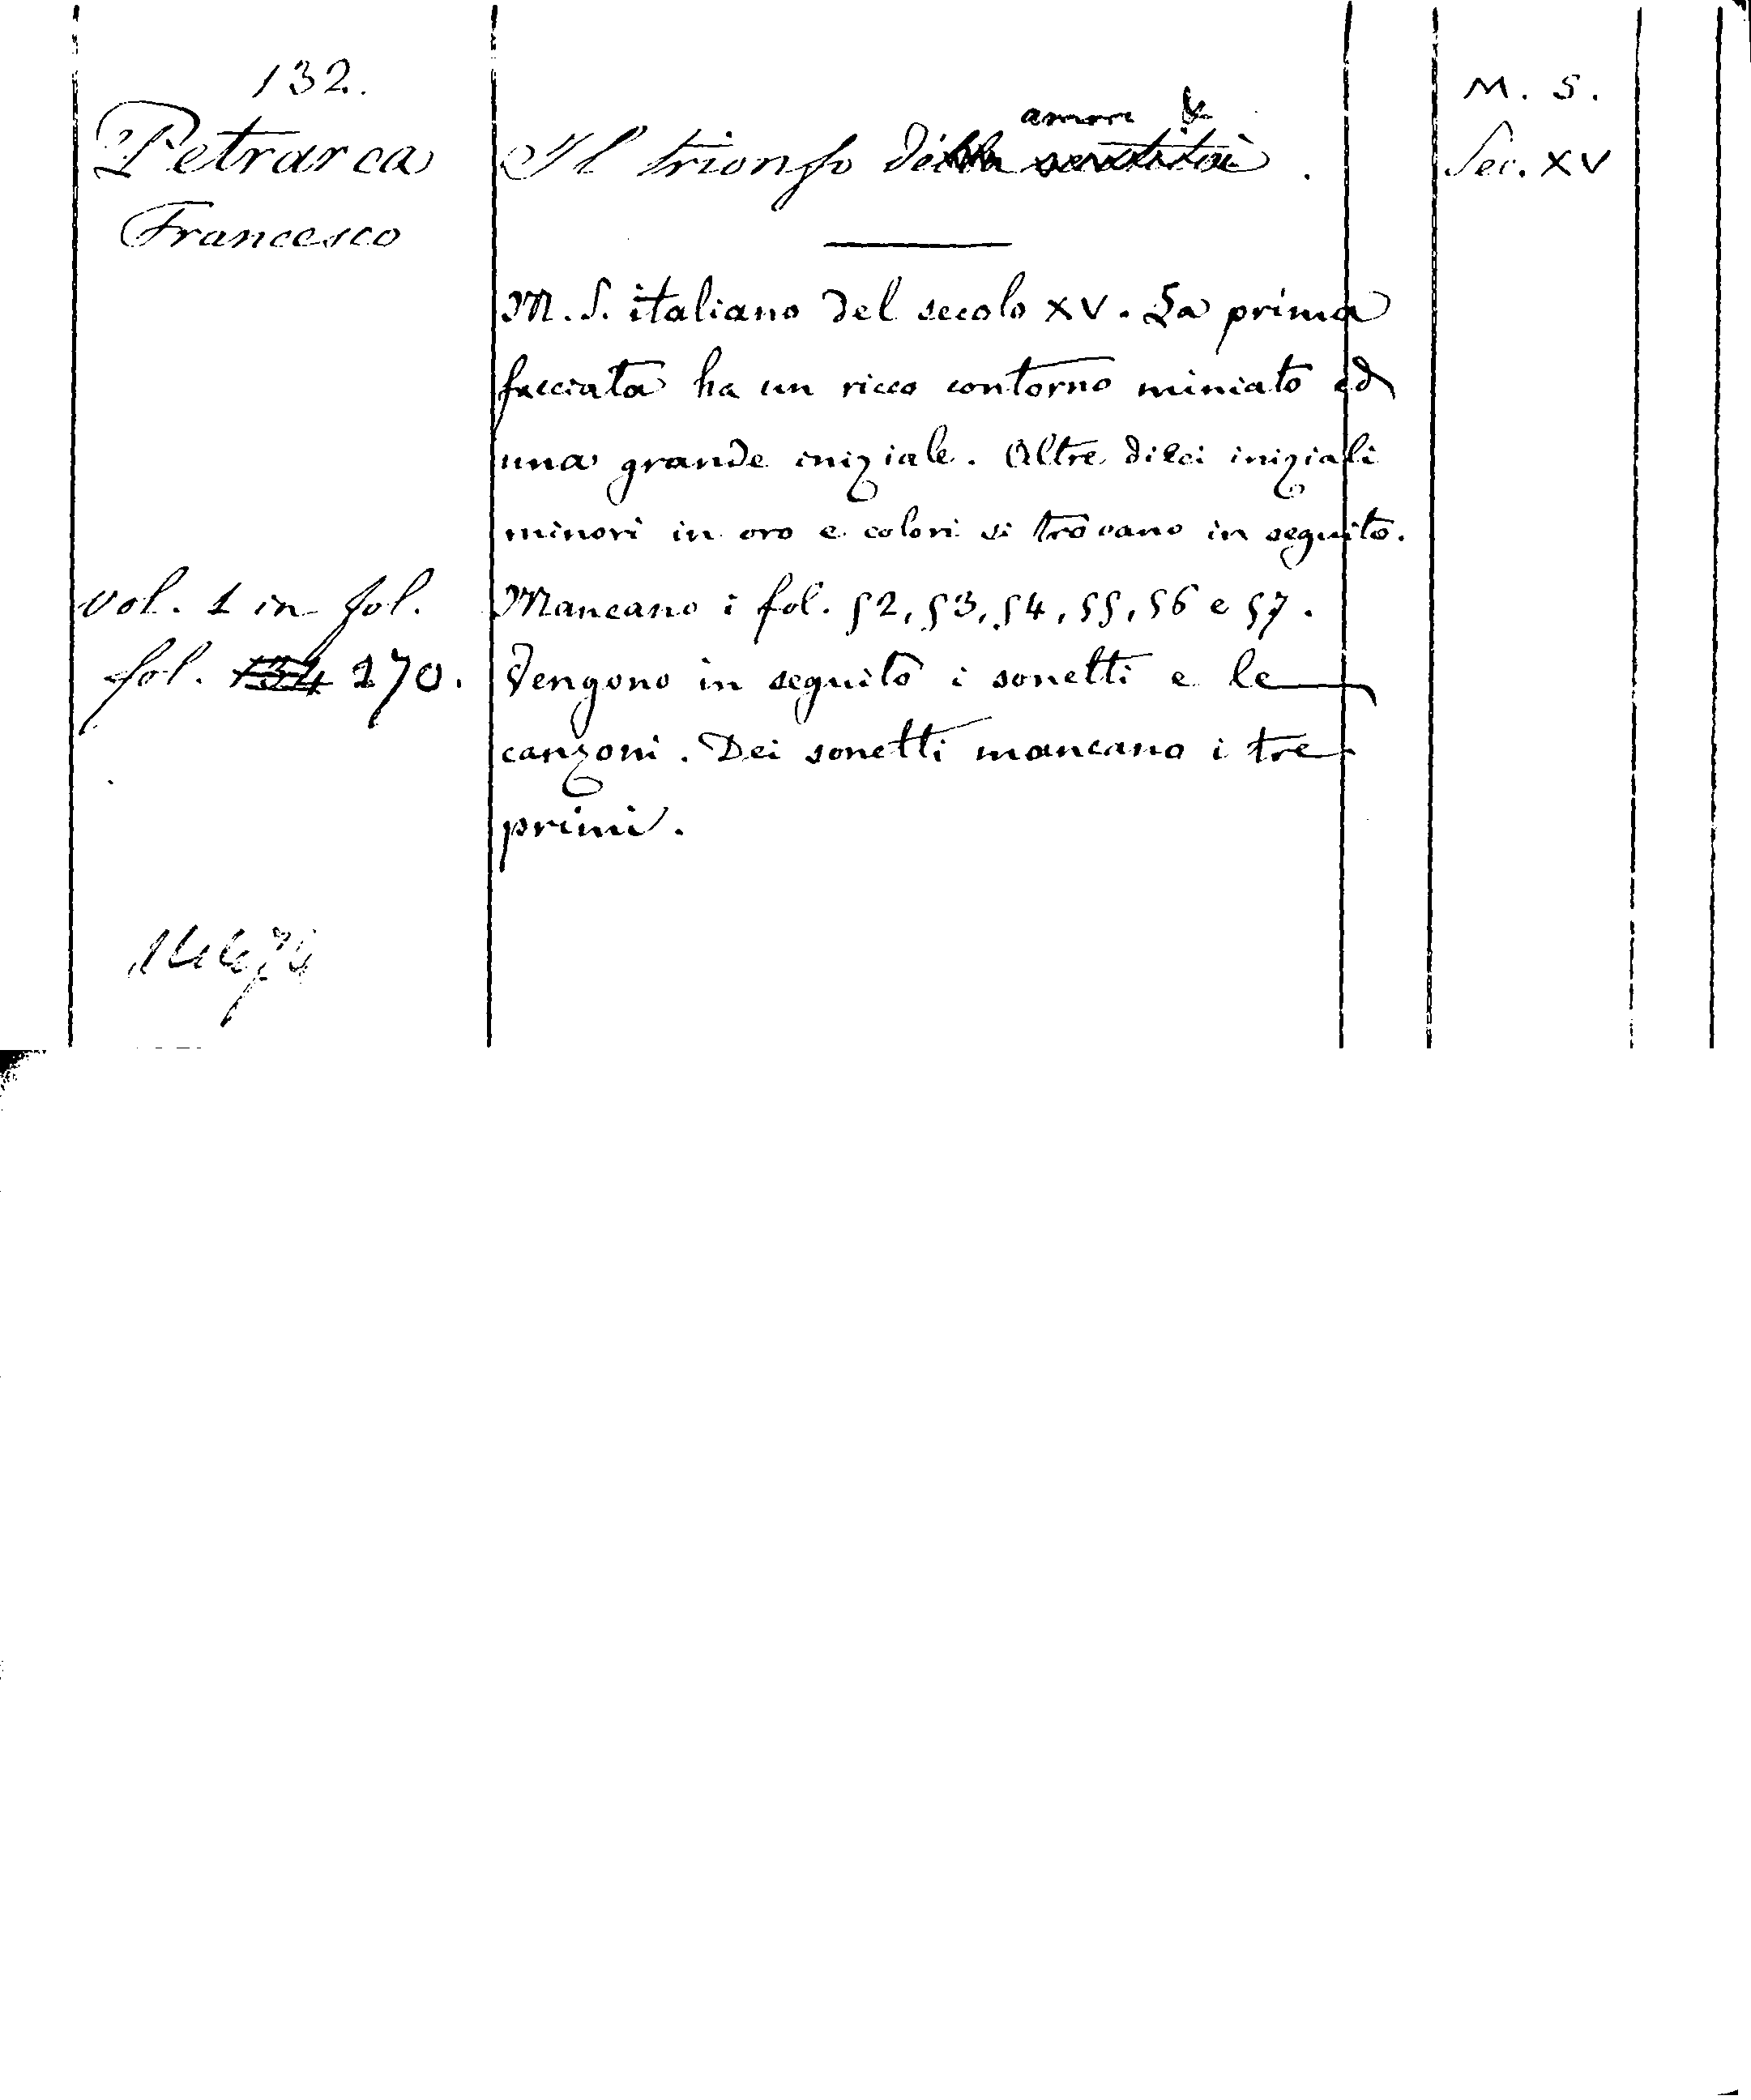 132.
Petrarca
Francesco
amore &
Il trionfo di
M. S.
Sec. XV
M. S. italiano del secolo XV. La prima
facciata ha un ricco contorno miniato ed
una grande iniziale. Altre dieci iniziali
minori in oro e colori si trovano in seguito.
vol. 1 in fol.
fol. 134 270.
Mancano i fol. 52, 53, 54, 55, 56 e 57.
Vengono in seguito i sonetti e le
canzoni. Dei sonetti mancano i tre
primi.